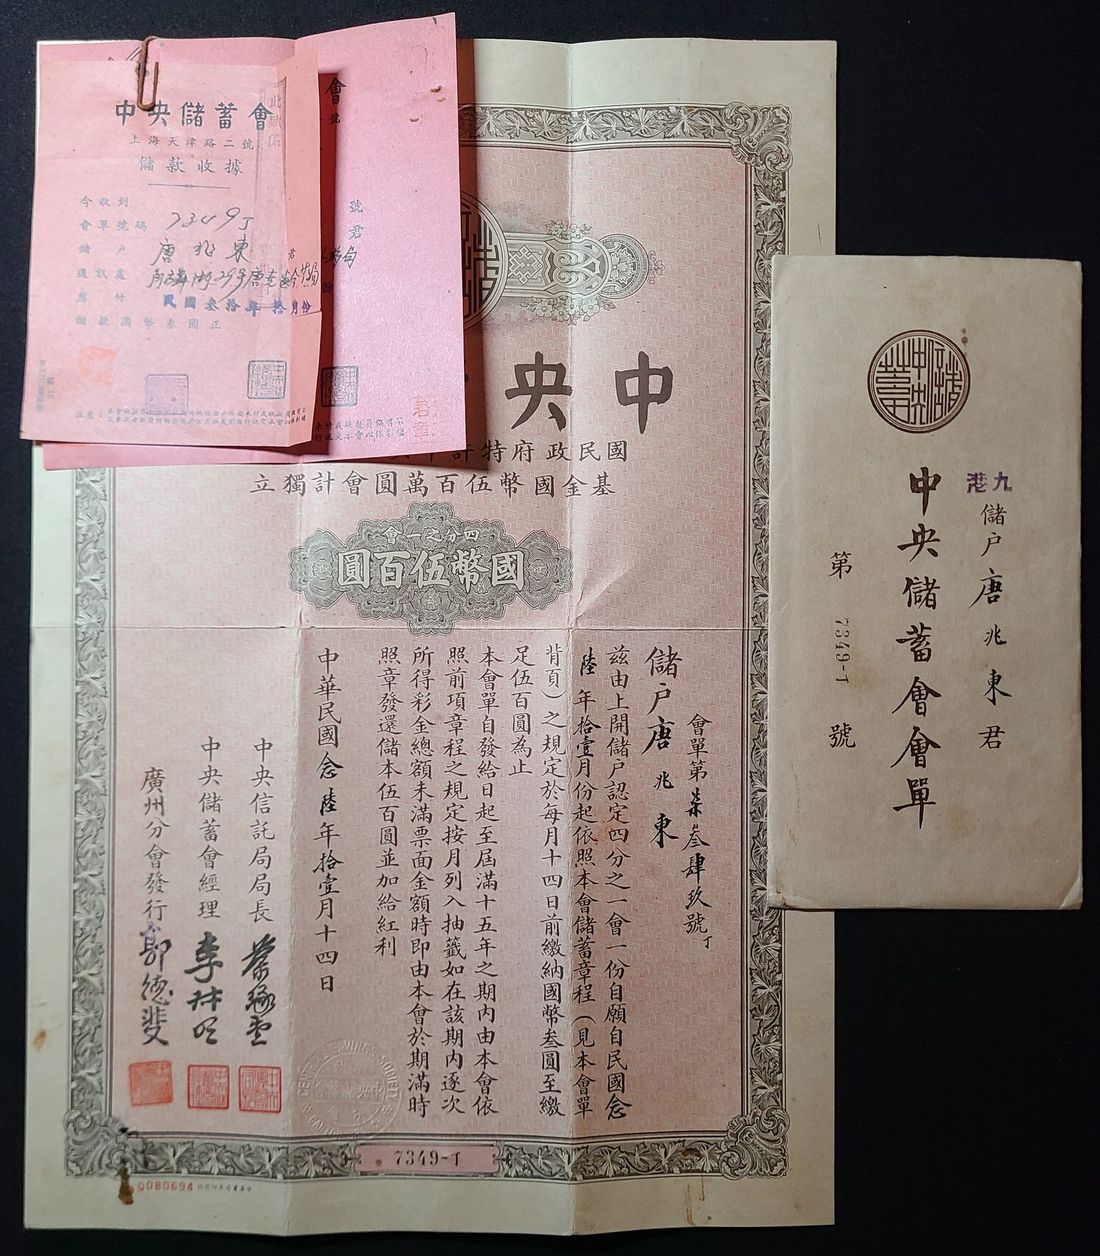 中央儲蓄會
上海天津路二號
儲款收據
今收到
會單號碼 7349丁
儲戶 唐兆東 君
通訊處
應付 民國叁拾年拾月份
儲款國幣叁圓正
會
號
號
君
中央
國民政府特許
基金國幣伍百萬圓會計獨立
四分之一會
國幣伍百圓
會單第柒叁肆玖號丁
儲戶唐兆東
茲由上開儲戶認定四分之一會一份自願自民國念
陸年拾壹月份起依照本會儲蓄章程（見本會單
背頁）之規定於每月十四日前繳納國幣叁圓至繳
足伍百圓為止
本會單自發給日起至屆滿十五年之期內由本會依
照前項章程之規定按月列入抽籤如在該期內逐次
所得彩金總額未滿票面金額時即由本會於期滿時
照章發還儲本伍百圓並加給紅利
中華民國念陸年拾壹月十四日
中央信託局局長
中央儲蓄會經理
廣州分會發行
郭德斐
CENTRAL SAVINGS SOCIETY
7349-T
0080694
九港
儲戶唐兆東君
中央儲蓄會會單
第7349-T號